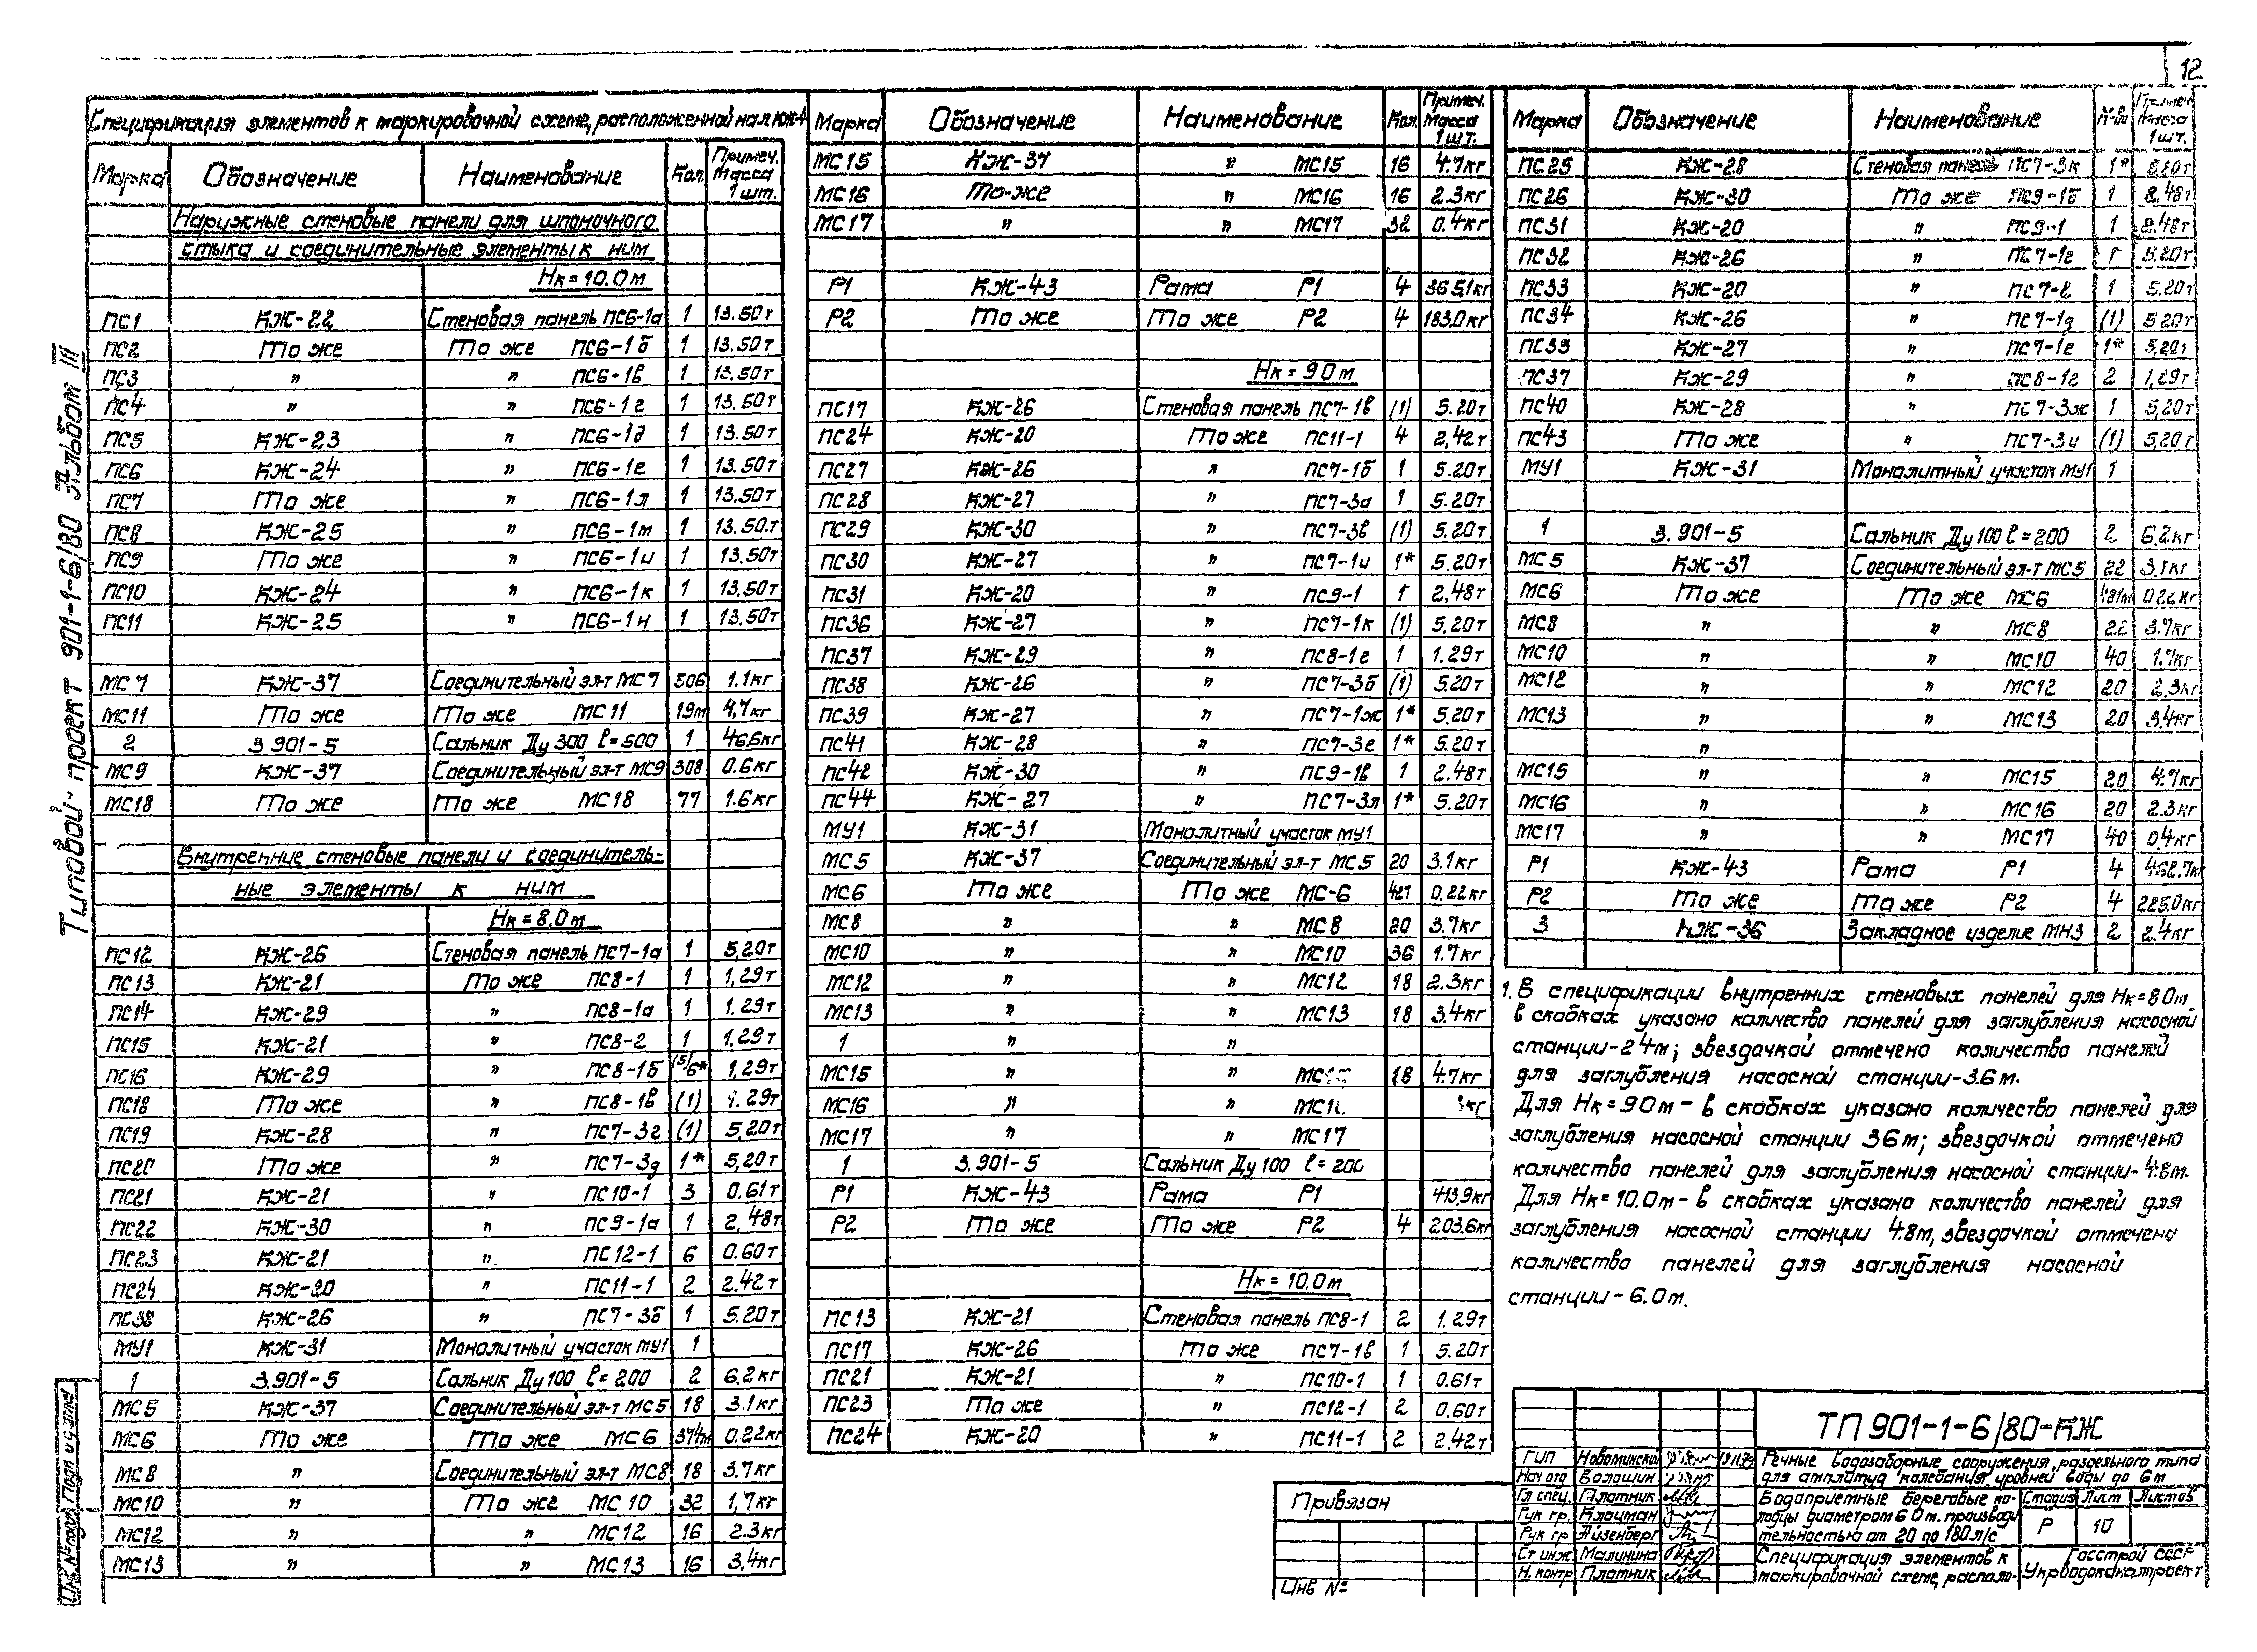 12
Типовой проект 901-1-6/80 Альбом III
Спецификация элементов к маркировочной схеме, расположенной на л. КЖ4
Марка Обозначение Наименование Кол. Примеч. Масса 1 шт.
Наружные стеновые панели для шпоночного
стыка и соединительные элементы к ним
Нк = 10.0 м
ПС1 КЖ-22 Стеновая панель ПС6-1а 1 13.50т
ПС2 То же То же ПС6-1б 1 13.50т
ПС3 " " ПС6-1в 1 13.50т
ПС4 " " ПС6-1г 1 13.50т
ПС5 КЖ-23 " ПС6-1д 1 13.50т
ПС6 КЖ-24 " ПС6-1е 1 13.50т
ПС7 То же " ПС6-1л 1 13.50т
ПС8 КЖ-25 " ПС6-1м 1 13.50т
ПС9 То же " ПС6-1и 1 13.50т
ПС10 КЖ-24 " ПС6-1к 1 13.50т
ПС11 КЖ-25 " ПС6-1н 1 13.50т
МС7 КЖ-37 Соединительный эл-т МС7 506 1.1кг
МС11 То же То же МС11 19м 4,7кг
2 3.901-5 Сальник Ду 300 ℓ=500 1 46.6кг
МС9 КЖ-37 Соединительный эл-т МС9 308 0.6кг
МС18 То же То же МС18 77 1.6кг
Внутренние стеновые панели и соединитель-
ные элементы к ним
Нк = 8.0 м
ПС12 КЖ-26 Стеновая панель ПС7-1а 1 5,20т
ПС13 КЖ-21 То же ПС8-1 1 1,29т
ПС14 КЖ-29 " ПС8-1а 1 1.29т
ПС15 КЖ-21 " ПС8-2 1 1.29т
ПС16 КЖ-29 " ПС8-1б (5)/6* 1,29т
ПС18 То же " ПС8-1в (1) 1.29т
ПС19 КЖ-28 " ПС7-3г (1) 5,20т
ПС20 То же " ПС7-3д 1* 5,20т
ПС21 КЖ-21 " ПС10-1 3 0.61т
ПС22 КЖ-30 " ПС9-1а 1 2,48т
ПС23 КЖ-21 " ПС12-1 6 0.60т
ПС24 КЖ-20 " ПС11-1 2 2.42т
ПС38 КЖ-26 " ПС7-3б 1 5.20т
МУ1 КЖ-31 Монолитный участок МУ1 1
1 3.901-5 Сальник Ду 100 ℓ=200 2 6.2кг
МС5 КЖ-37 Соединительный эл-т МС5 18 3.1кг
МС6 То же То же МС6 374м 0.22кг
МС8 " Соединительный эл-т МС8 18 3.7кг
МС10 " То же МС10 32 1,7кг
МС12 " " МС12 16 2.3кг
МС13 " " МС13 16 3,4кг
Марка Обозначение Наименование Кол. Примеч. Масса 1 шт.
МС15 КЖ-37 " МС15 16 4.7кг
МС16 То же " МС16 16 2.3кг
МС17 " " МС17 32 0.4кг
Р1 КЖ-43 Рама Р1 4 365,1кг
Р2 То же То же Р2 4 183.0кг
Нк = 9.0 м
ПС17 КЖ-26 Стеновая панель ПС7-1в (1) 5.20т
ПС24 КЖ-20 То же ПС11-1 4 2,42т
ПС27 КЖ-26 " ПС7-1б 1 5.20т
ПС28 КЖ-27 " ПС7-3а 1 5.20т
ПС29 КЖ-30 " ПС7-3в (1) 5.20т
ПС30 КЖ-27 " ПС7-1и 1* 5.20т
ПС31 КЖ-20 " ПС9-1 1 2,48т
ПС36 КЖ-27 " ПС7-1к (1) 5,20т
ПС37 КЖ-29 " ПС8-1г 1 1.29т
ПС38 КЖ-26 " ПС7-3б (1) 5.20т
ПС39 КЖ-27 " ПС7-1ж 1* 5.20т
ПС41 КЖ-28 " ПС7-3е 1* 5.20т
ПС42 КЖ-30 " ПС9-1в 1 2.48т
ПС44 КЖ-27 " ПС7-3л 1* 5.20т
МУ1 КЖ-31 Монолитный участок МУ1
МС5 КЖ-37 Соединительный эл-т МС5 20 3.1кг
МС6 То же То же МС-6 427 0.22кг
МС8 " " МС8 20 3.7кг
МС10 " " МС10 36 1.7кг
МС12 " " МС12 18 2.3кг
МС13 " " МС13 18 3.4кг
1 " "
МС15 " " 18 4.7кг
МС16 " " кг
МС17 " " МС17
1 3.901-5 Сальник Ду 100 ℓ=200
Р1 КЖ-43 Рама Р1 413,9кг
Р2 То же То же Р2 4 203.6кг
Нк = 10.0 м
ПС13 КЖ-21 Стеновая панель ПС8-1 2 1.29т
ПС17 КЖ-26 То же ПС7-1в 1 5.20т
ПС21 КЖ-21 " ПС10-1 1 0.61т
ПС23 То же " ПС12-1 2 0.60т
ПС24 КЖ-20 " ПС11-1 2 2.42т
Марка Обозначение Наименование К-во Примеч Масса 1 шт.
ПС25 КЖ-28 Стеновая панель ПС7-3к 1* 5,20т
ПС26 КЖ-30 То же ПС9-1б 1 2,48т
ПС31 КЖ-20 " ПС9-1 1 2.48т
ПС32 КЖ-26 " ПС7-1г 1 5,20т
ПС33 КЖ-20 " ПС7-2 1 5.20т
ПС34 КЖ-26 " ПС7-1д (1) 5.20т
ПС35 КЖ-27 " ПС7-1е 1* 5,20т
ПС37 КЖ-29 " ПС8-1г 2 1,29т
ПС40 КЖ-28 " ПС7-3ж 1 5,20т
ПС43 То же " ПС7-3и (1) 5,20т
МУ1 КЖ-31 Монолитный участок МУ1 1
1 3.901-5 Сальник Ду 100 ℓ=200 2 6.2кг
МС5 КЖ-37 Соединительный эл-т МС5 22 3.1кг
МС6 То же То же МС6 481м 0.22кг
МС8 " " МС8 22 3.7кг
МС10 " " МС10 40 1.7кг
МС12 " " МС12 20 2.3кг
МС13 " " МС13 20 3.4кг
"
МС15 " " МС15 20 4.7кг
МС16 " " МС16 20 2.3кг
МС17 " " МС17 40 0.4кг
Р1 КЖ-43 Рама Р1 4 462.7кг
Р2 То же То же Р2 4 225.0кг
3 КЖ-36 Закладное изделие МН3 2 2.4кг
1. В спецификации внутренних стеновых панелей для Нк=8.0м
в скобках указано количество панелей для заглубления насосной
станции-2.4м; звездочкой отмечено количество панелей
для заглубления насосной станции-3.6м.
Для Нк=9.0м - в скобках указано количество панелей для
заглубления насосной станции 3.6м; звездочкой отмечено
количество панелей для заглубления насосной станции-4.8м.
Для Нк=10.0м - в скобках указано количество панелей для
заглубления насосной станции 4.8м, звездочкой отмечено
количество панелей для заглубления насосной
станции-6.0м.
ТП 901-1-6/80-КЖ
ГИП Новоминский
Нач отд Волошин
Гл. спец. Плотник
Рук гр. Клоцман
Рук гр Айзенберг
Ст инж Малинина
Н. контр Плотник
Речные водозаборные сооружения раздельного типа
для амплитуд колебания уровней воды до 6 м
Водоприемные береговые ко-
лодцы диаметром 6.0 м. производи
тельностью от 20 до 180 л/с
Стадия Лист Листов
Р 10
Спецификация элементов к
маркировочной схеме, располо-
Госстрой СССР
Укрводоканалпроект
Привязан
Инв №
Инв.№ подл Подп и дата